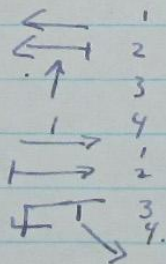 1
2
3
4
1
2
3
4.